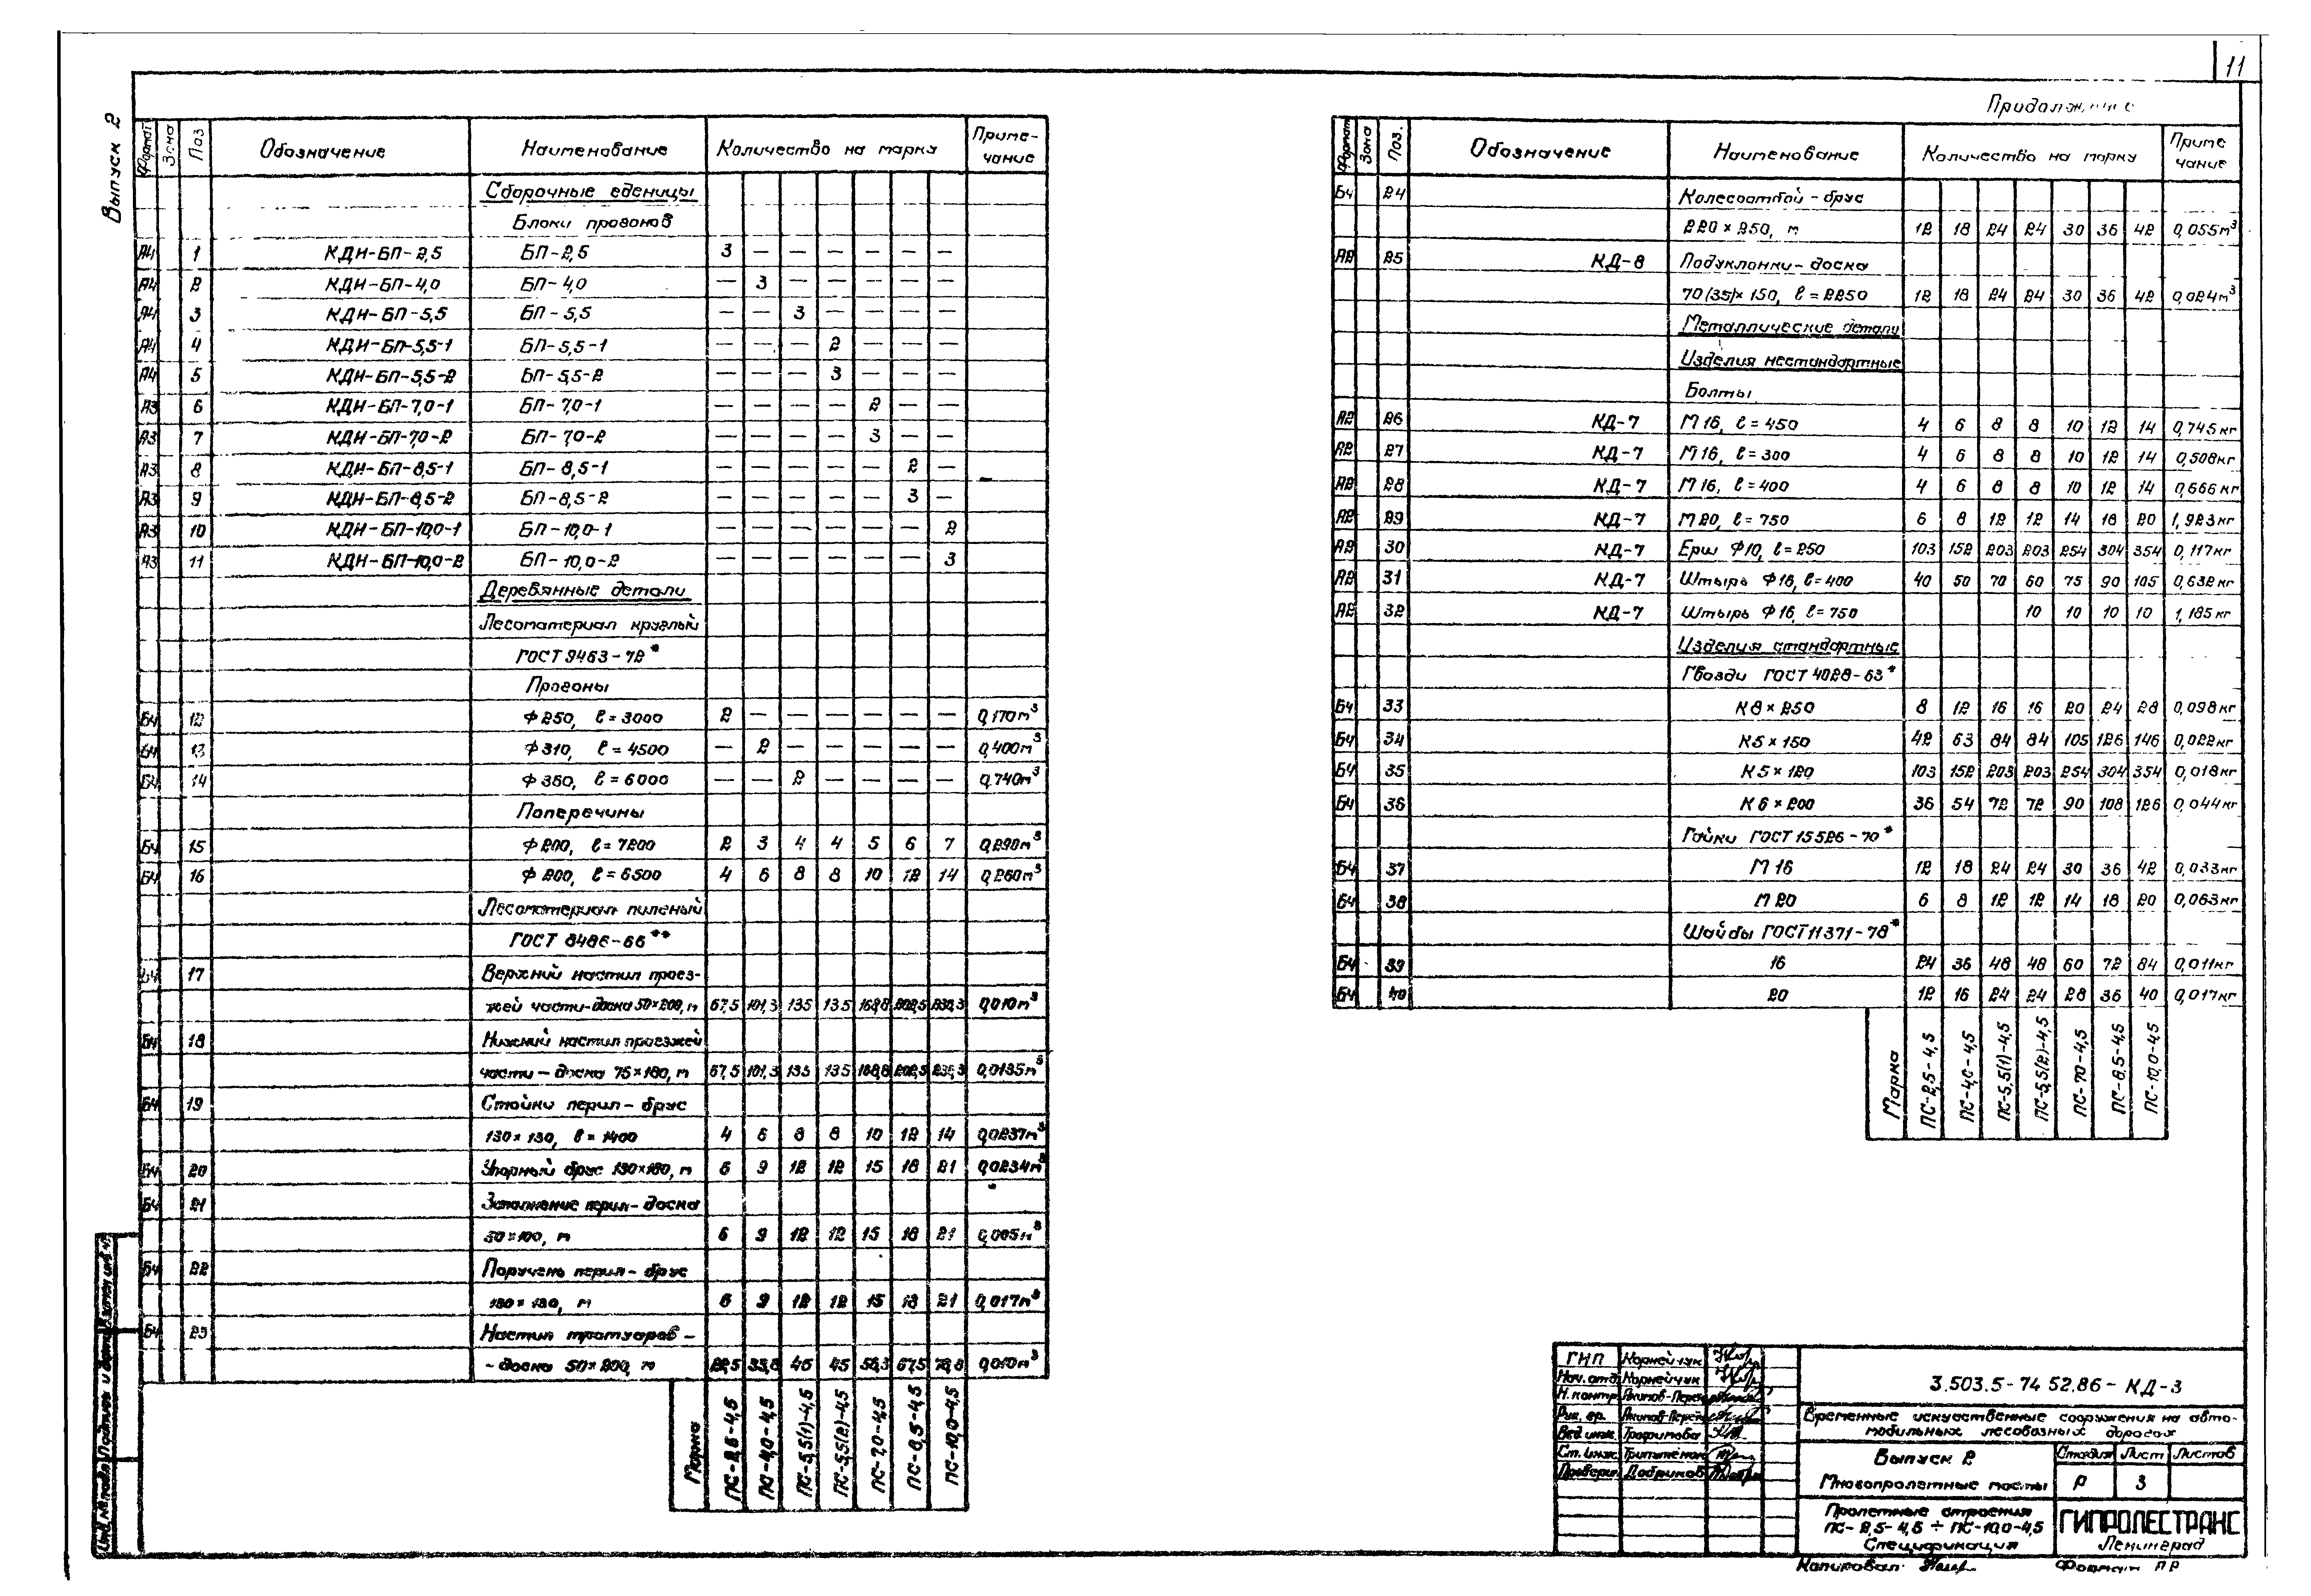 11
Выпуск 2
Формат Зона Поз Обозначение Наименование Количество на марку Приме-
чание
Сборочные еденицы
Блоки прогонов
А4 1 КДН-БП-2,5 БП-2,5 3 — — — — — —
А4 2 КДН-БП-4,0 БП-4,0 — 3 — — — — —
А4 3 КДН-БП-5,5 БП-5,5 — — 3 — — — —
А4 4 КДН-БП-5,5-1 БП-5,5-1 — — — 2 — — —
А4 5 КДН-БП-5,5-2 БП-5,5-2 — — — 3 — — —
А3 6 КДН-БП-7,0-1 БП-7,0-1 — — — — 2 — —
А3 7 КДН-БП-7,0-2 БП-7,0-2 — — — — 3 — —
А3 8 КДН-БП-8,5-1 БП-8,5-1 — — — — — 2 —
А3 9 КДН-БП-8,5-2 БП-8,5-2 — — — — — 3 —
А3 10 КДН-БП-10,0-1 БП-10,0-1 — — — — — — 2
А3 11 КДН-БП-10,0-2 БП-10,0-2 — — — — — — 3
Деревянные детали
Лесоматериал круглый
ГОСТ 9463-72*
Прогоны
Б4 12 Ф250, ℓ=3000 2 — — — — — — 0,170м³
Б4 13 Ф310, ℓ=4500 — 2 — — — — — 0,400м³
Б4 14 Ф360, ℓ=6000 — — 2 — — — — 0,740м³
Поперечины
Б4 15 Ф200, ℓ=7200 2 3 4 4 5 6 7 0,290м³
Б4 16 Ф200, ℓ=6500 4 6 8 8 10 12 14 0,260м³
Лесоматериал пиленый
ГОСТ 8486-66**
Б4 17 Верхний настил проез-
жей части-доска 50×200, м 67,5 101,3 135 135 168,8 202,5 236,3 0,010м³
Б4 18 Нижний настил проезжей
части-доска 75×180, м 67,5 101,3 135 135 168,8 202,5 236,3 0,0135м³
Б4 19 Стойки перил-брус
130×130, ℓ=1400 4 6 8 8 10 12 14 0,0237м³
Б4 20 Упорный брус 130×180, м 6 9 12 12 15 18 21 0,0234м³
Б4 21 Заполнение перил-доска
50×100, м 6 9 12 12 15 18 21 0,005м³
Б4 22 Поручень перил-брус
130×130, м 6 9 12 12 15 18 21 0,017м³
Б4 23 Настил тротуаров-
-доска 50×200, м 22,5 33,8 45 45 56,3 67,5 78,8 0,010м³
Марка ПС-2,5-4,5 ПС-4,0-4,5 ПС-5,5(1)-4,5 ПС-5,5(2)-4,5 ПС-7,0-4,5 ПС-8,5-4,5 ПС-10,0-4,5
Продолжение
Формат Зона Поз. Обозначение Наименование Количество на марку Приме
чание
Б4 24 Колесоотбой-брус
220×250, м 12 18 24 24 30 36 42 0,055м³
А2 25 КД-8 Подуклонки-доска
70/35/×150, ℓ=2250 12 18 24 24 30 36 42 0,024м³
Металлические детали
Изделия нестандартные
Болты
А2 26 КД-7 М16, ℓ=450 4 6 8 8 10 12 14 0,745кг
А2 27 КД-7 М16, ℓ=300 4 6 8 8 10 12 14 0,508кг
А2 28 КД-7 М16, ℓ=400 4 6 8 8 10 12 14 0,666кг
А2 29 КД-7 М20, ℓ=750 6 8 12 12 14 18 20 1,923кг
А2 30 КД-7 Ерш Ф10, ℓ=250 103 152 203 203 254 304 354 0,117кг
А2 31 КД-7 Штырь Ф16, ℓ=400 40 50 70 60 75 90 105 0,632кг
А2 32 КД-7 Штырь Ф16, ℓ=750 10 10 10 10 1,185кг
Изделия стандартные
Гвозди ГОСТ 4028-63*
Б4 33 К8×250 8 12 16 16 20 24 28 0,098кг
Б4 34 К5×150 42 63 84 84 105 126 146 0,022кг
Б4 35 К5×120 103 152 203 203 254 304 354 0,018кг
Б4 36 К6×200 36 54 72 72 90 108 126 0,044кг
Гайки ГОСТ 15526-70*
Б4 37 М16 12 18 24 24 30 36 42 0,033кг
Б4 38 М20 6 8 12 12 14 18 20 0,063кг
Шайбы ГОСТ 11371-78*
Б4 39 16 24 36 48 48 60 72 84 0,011кг
Б4 40 20 12 16 24 24 28 36 40 0,017кг
Марка ПС-2,5-4,5 ПС-4,0-4,5 ПС-5,5(1)-4,5 ПС-5,5(2)-4,5 ПС-7,0-4,5 ПС-8,5-4,5 ПС-10,0-4,5
ГИП Корнейчук
Нач. отд. Корнейчук
Н. контр.
Рук. гр.
Вед. инж. Трофимова
Ст. инж.
Проверил Добряков
3.503.5-74 52.86-КД-3
Временные искусственные сооружения на авто-
мобильных лесовозных дорогах
Выпуск 2
Многопролетные мосты
Стадия Лист Листов
Р 3
Пролетные строения
ПС-2,5-4,5÷ПС-10,0-4,5
Спецификация
ГИПРОЛЕСТРАНС
Ленинград
Копировал: Формат А2
Инв. № подл. Подпись и дата Взам. инв. №